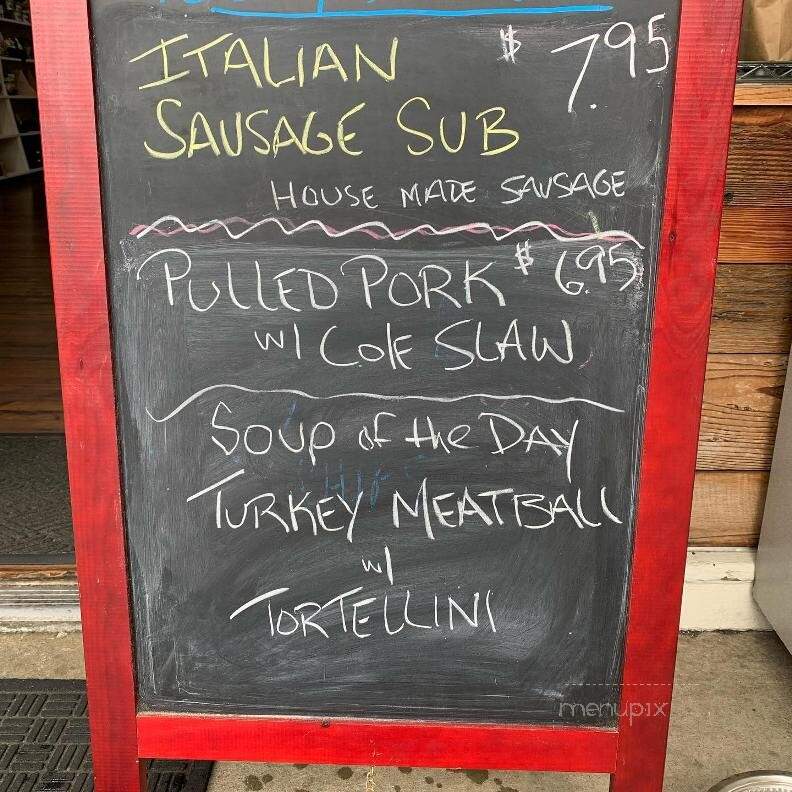 ITALIAN $ 7.95
SAUSAGE SUB
HOUSE MADE SAUSAGE
PULLED PORK $ 6.95
w/ Cole SLAW
Soup of the DAY
TURKEY MEATBALL
w/
TORTELLINI
menupix